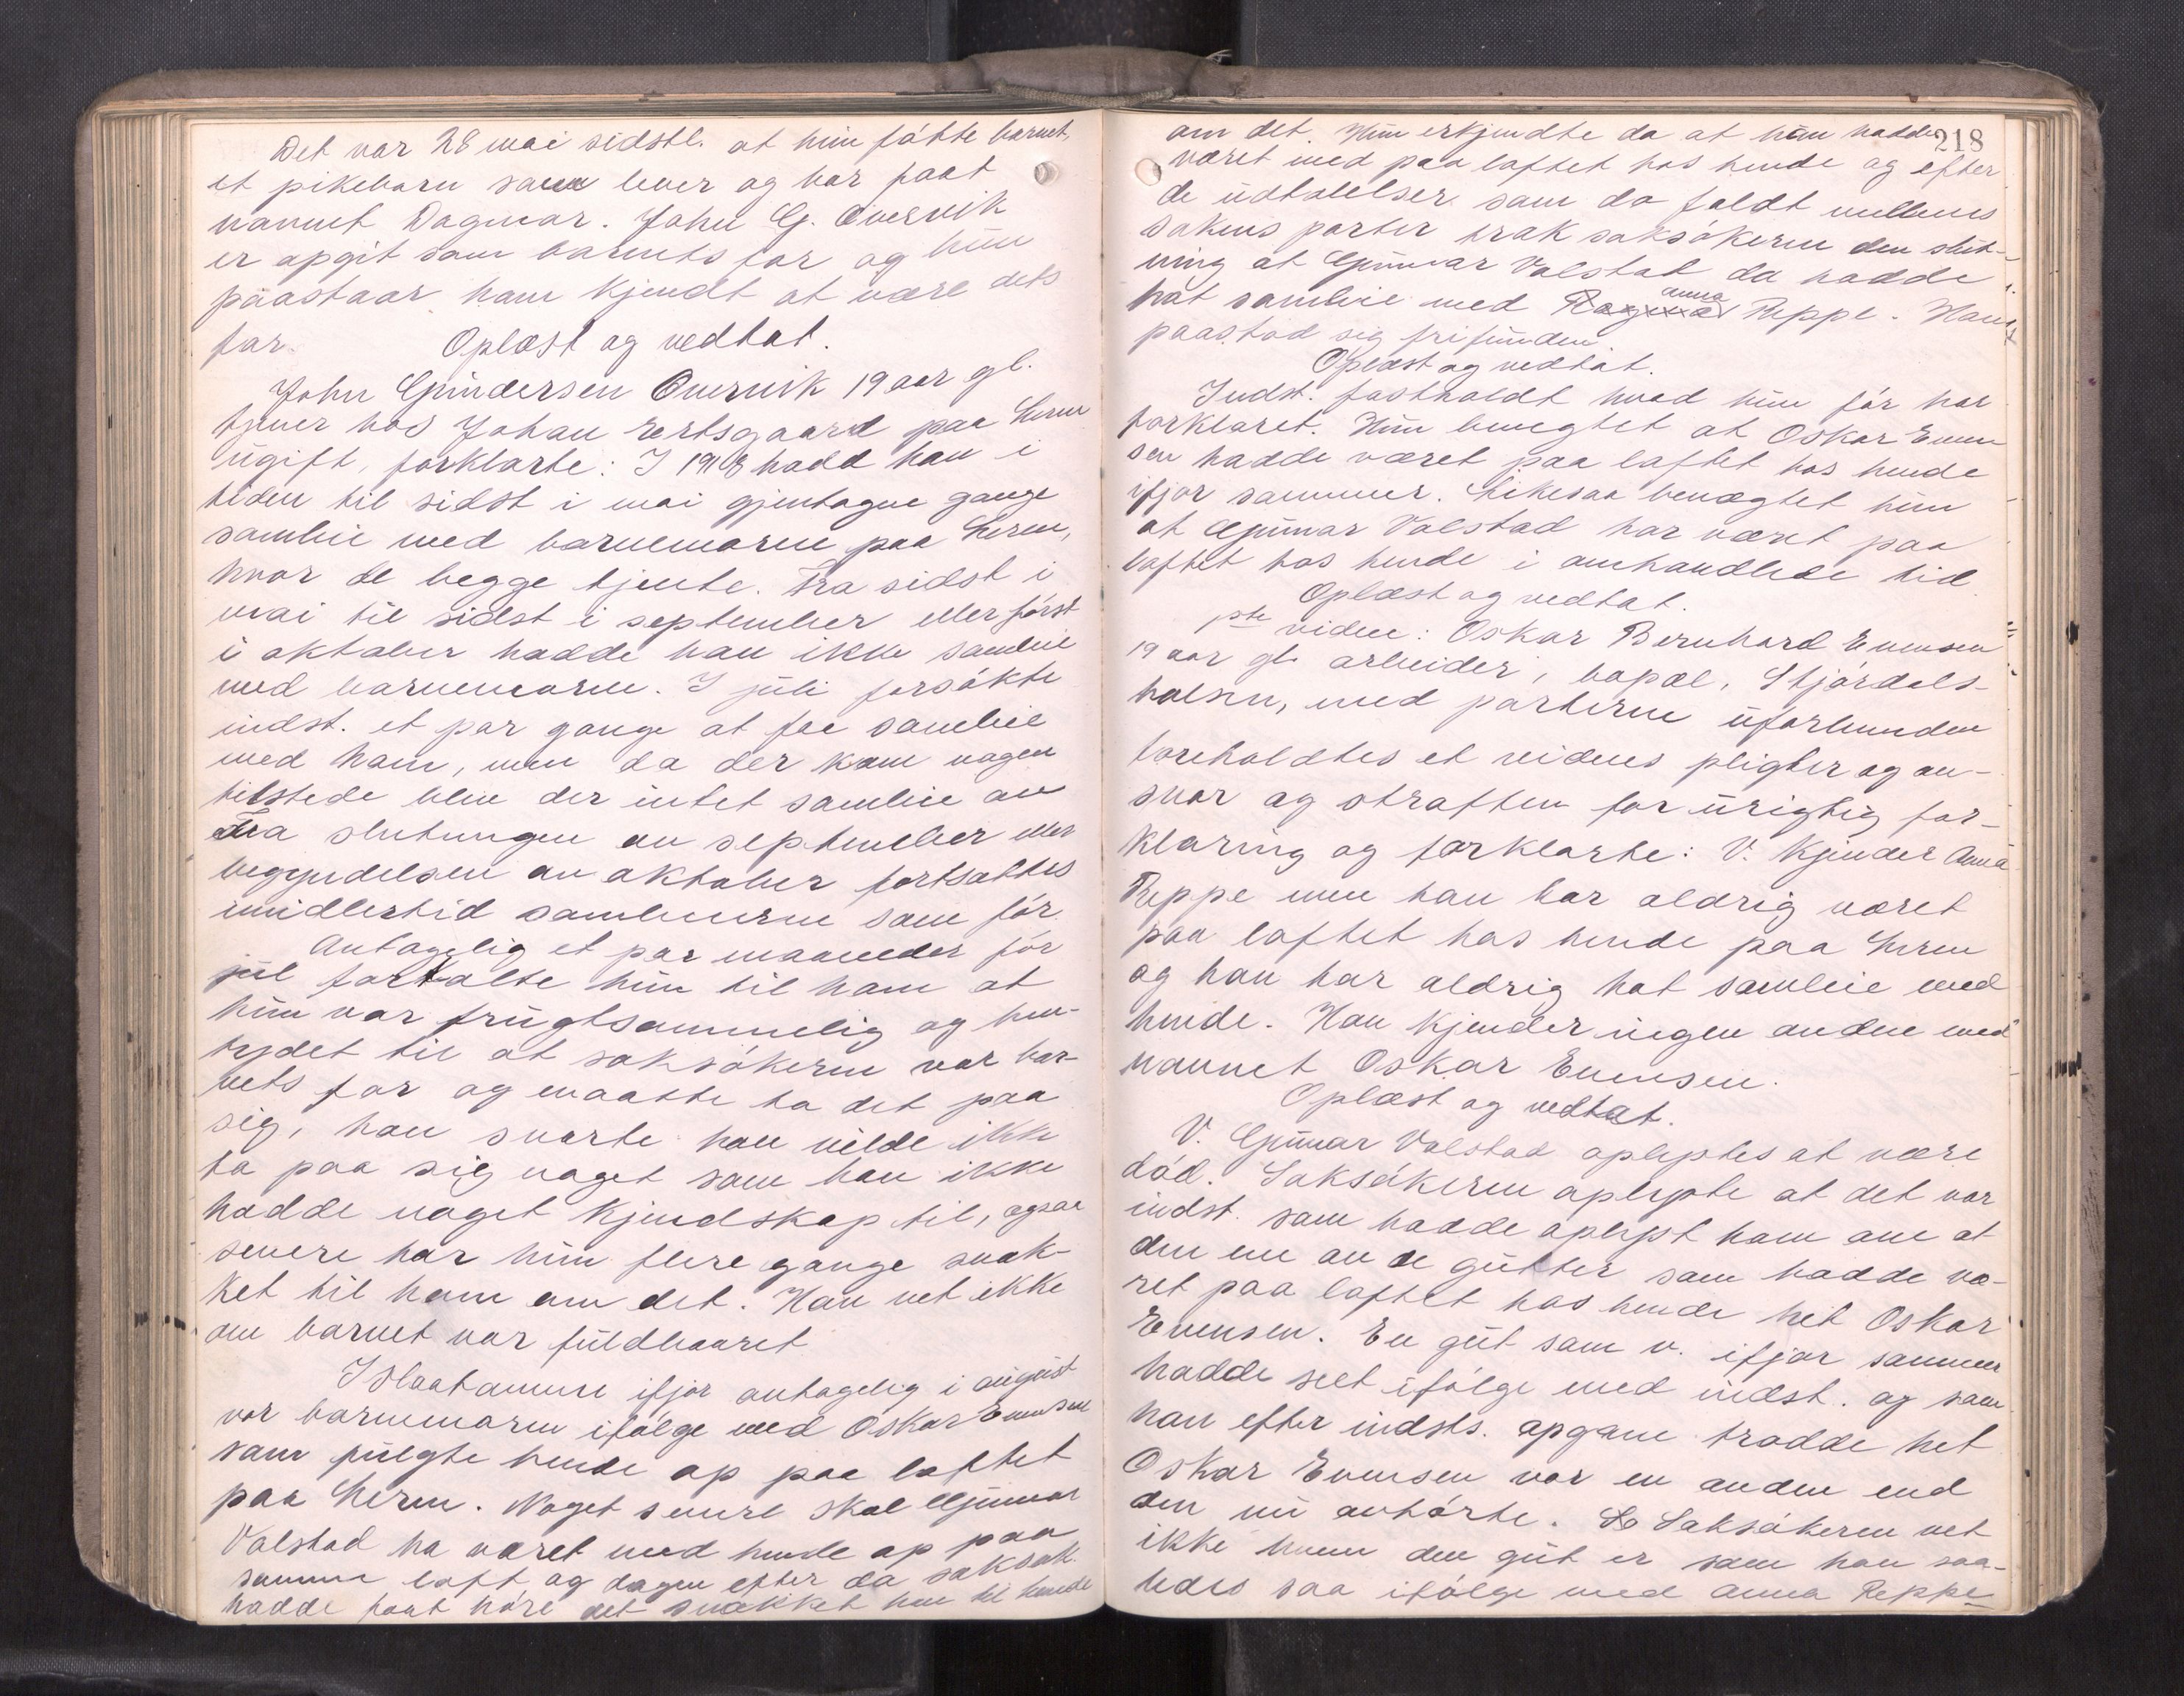 Det var 28 mai sidstl. at hun fødte barnet,
et pikebarn som lever og har faat
navnet Dagmar. John G. Overvik
er opgit som barnets far og hun
påastaar ham kjendt at være dets
far. Oplæst og vedtat.
John Gundersen Overvik 19 aar gl.
tjener hos Johan Ertsgaard paa Leren
ugift, forklarte: I 1918 hadd han i
tiden til sidst i mai gjentagne gange
samleie med barnemoren paa Leren,
hvor de begge tjente. Fra sidst i
mai til sidst i september eller først
i oktober hadde han ikke samleie
med barnemoren. I juli forsøkte
indst. et par gange at faa samleie
med ham, men da der kom nogen
tilstede blev der intet samleie av
Fra slutningen av september eller
begyndelsen av oktober fortsattes
imidlertid samleierne som før.
Antagelig et par maaneder før
jul fortalte hun til ham at
hun var frugtsommelig og hen-
tydet til at saksøkeren var bar-
nets far og maatte ta det paa
sig, han svarte han vilde ikke
ta paa sig noget som han ikke
hadde noget kjendskap til, ogsaa
senere har hun flere gange snak-
ket til ham om det. Han vet ikke
om barnet var fuldbaaret
I slaataanna ifjor antagelig i august
var barnemoren ifølge med Oskar Evensen
som fulgte hende op paa loftet
paa Leren. Noget senere skal Gunnar
Valstad ha været med hende op paa
samme loft, og dagen efter da saksøk.
hadde faat høre det snakket han til hende
218
om det. Hun erkjendte da at han hadde
været med paa loftet hos hende og efter
de udtalelser som da faldt mellem
sakens parter trak saksøkeren den slut-
ning at Gunnar Valstad da hadde
hat samleie med Ragna anna Reppe. Han
paastod sig frifunden
Oplæst og vedtat.
Indst. fastholdt hvad hun før har
forklaret. Hun benegtet at Oskar Even
sen hadde været paa loftet hos hende
ifjor sommer. Likesaa benægtet hun
at Gunnar Valstad har været paa
loftet hos hende i omhandlede tid.
Oplæst og vedtat.
1ste vidne: Oskar Bernhard Evensen
19 aar gl. arbeider, bopæl, Stjørdals-
halsen, med parterne uforbunden
foreholdtes et vidnes pligter og an-
svar og straffen for urigtig for-
klaring og forklarte: V. kjender Anna
Reppe men han har aldrig været
paa loftet hos hende paa Leren
og han har aldrig hat samleie med
hende. Han kjender ingen anden med
navnet Oskar Evensen.
Oplæst og vedtat.
V. Gunnar Valstad oplystes at være
død. Saksøkeren oplyste at det var
indst. som hadde oplyst ham om at
den ene av de gutter som hadde væ-
ret paa loftet hos hende het Oskar
Evensen. En gut som v. ifjor sommer
hadde seet ifølge med indst. og som
han efter indsts. opgave trodde het
Oskar Evensen var en anden end
den nu avhørte. Sa Saksøkeren vet
ikke hvem den gut er som han saa-
ledes saa ifølge med Anna Reppe